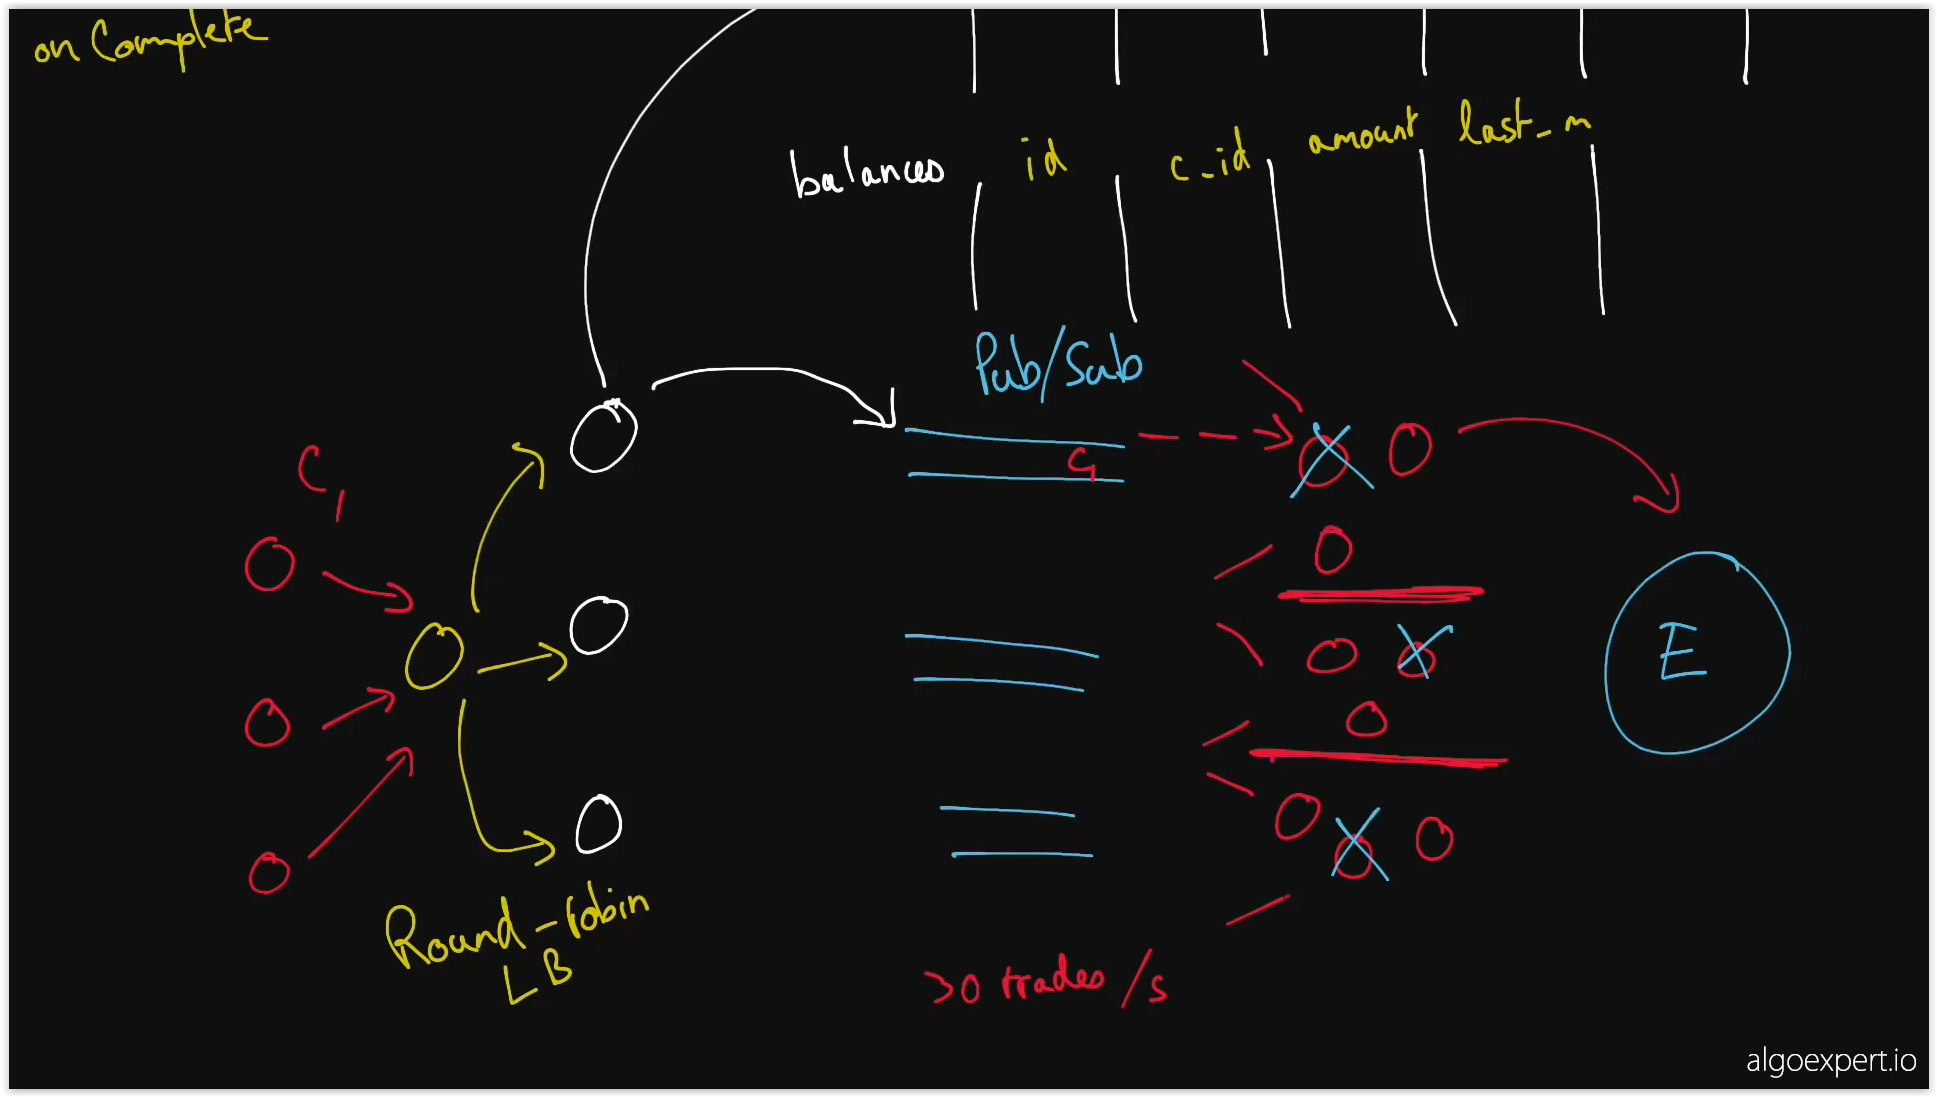 on Complete
balances id c_id amount last_m
Pub/Sub
C1
C1
E
Round-robin
LB
>0 trades/s
algoexpert.io